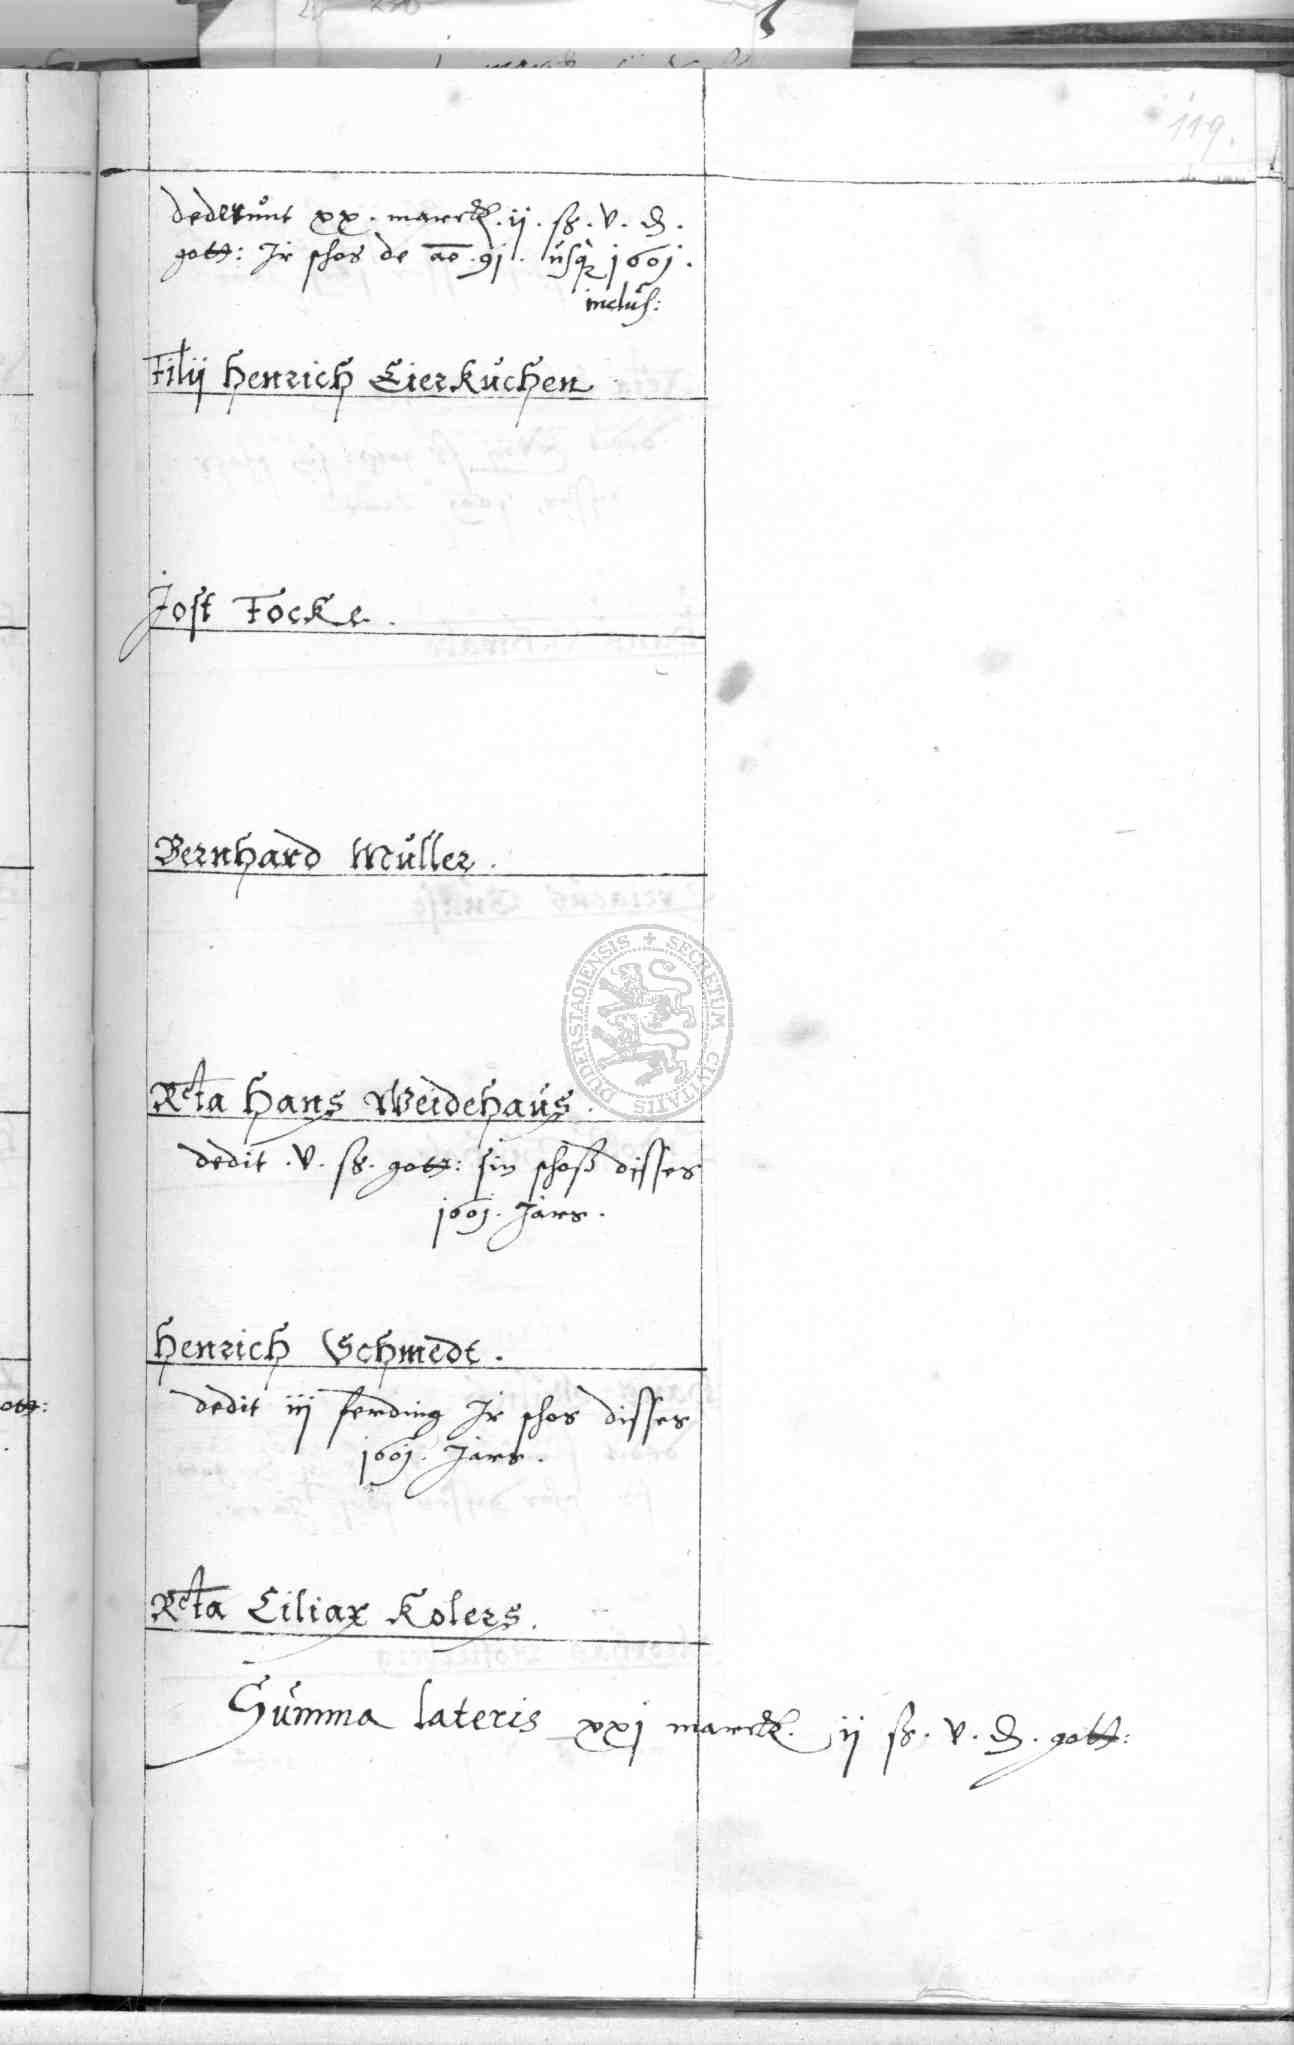 119.
dederunt xx. marck. ij. ß. v. ₰.
gott: Ir schos de ao. 91. usq 1601.
inclus:
Filij Henrich Eierkuchen
Jost Focke.
Bernhard Müller.
Rcta Hans Weidehaus.
dedit. v. ß. gott: sin schoß disses
1601. Jars.
Henrich Schmedt.
dedit iij ferding Ir schos disses
1601. Jars.
Rcta Ciliax Kolers.
Summa lateris xxj marck. ij ß. v. ₰. gott:
SECRETUM CIVITATIS DUDERSTADIENSIS